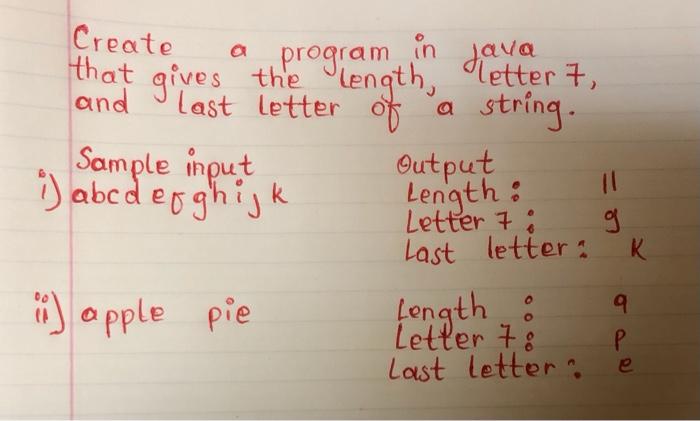 Create a program in java
that gives the length, letter 7,
and last letter of a string.
Sample input Output
i) abcdefghijk Length : 11
Letter 7 : g
Last letter : k
ii) apple pie Length : 9
Letter 7 : p
Last letter : e